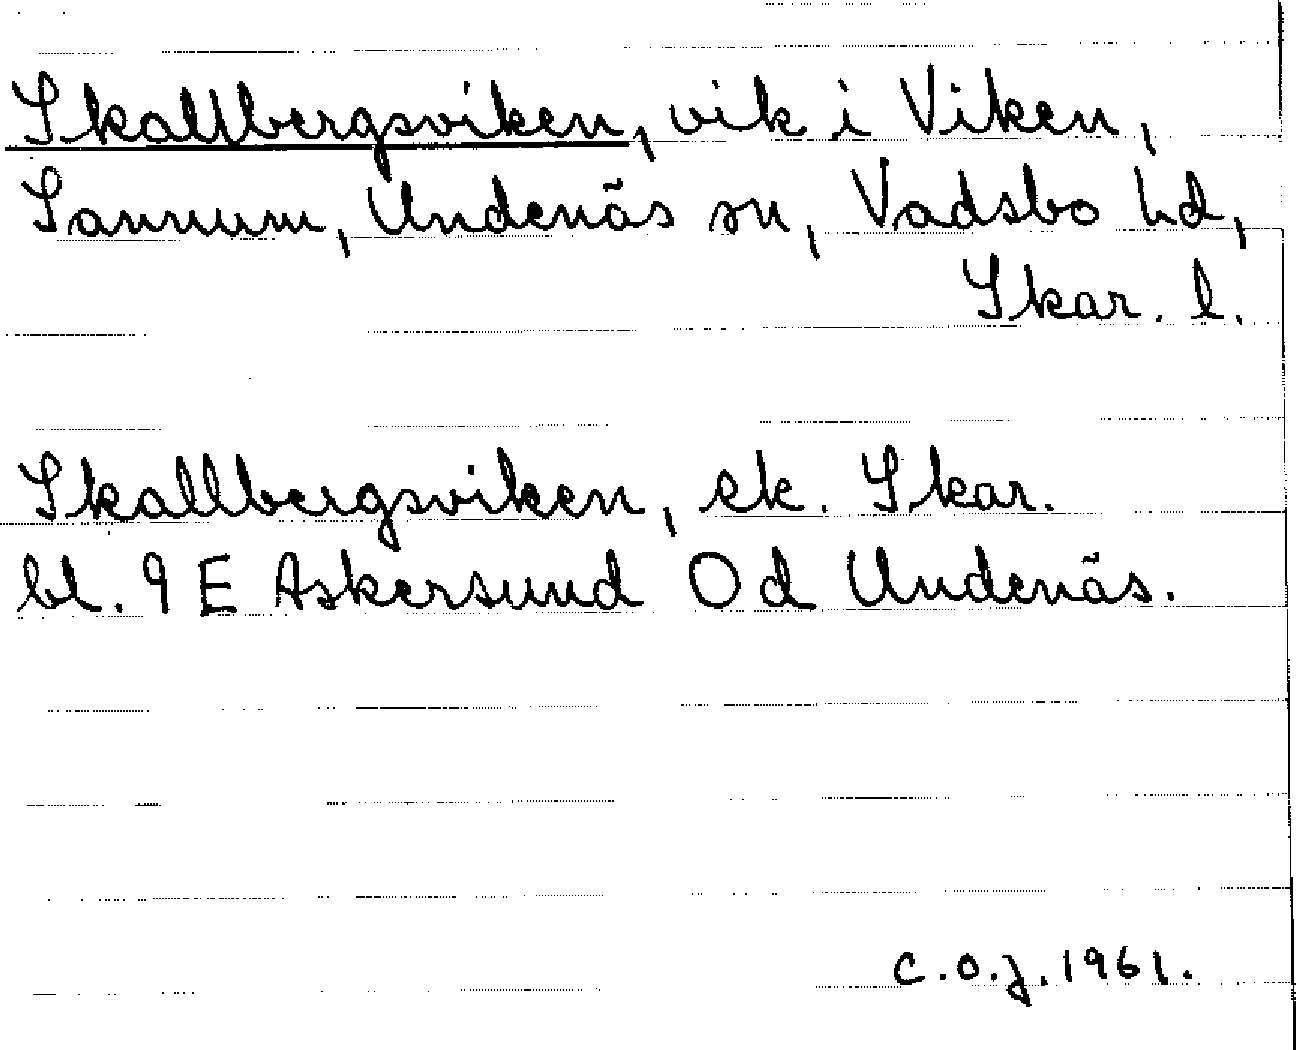 Skallbergsviken, vik i Viken,
Sannum, Undenäs sn, Vadsbo hd,
Skar. l.
Skallbergsviken, ek. Skar.
bl. 9 E Askersund 0 d Undenäs.
C.O.J. 1961.